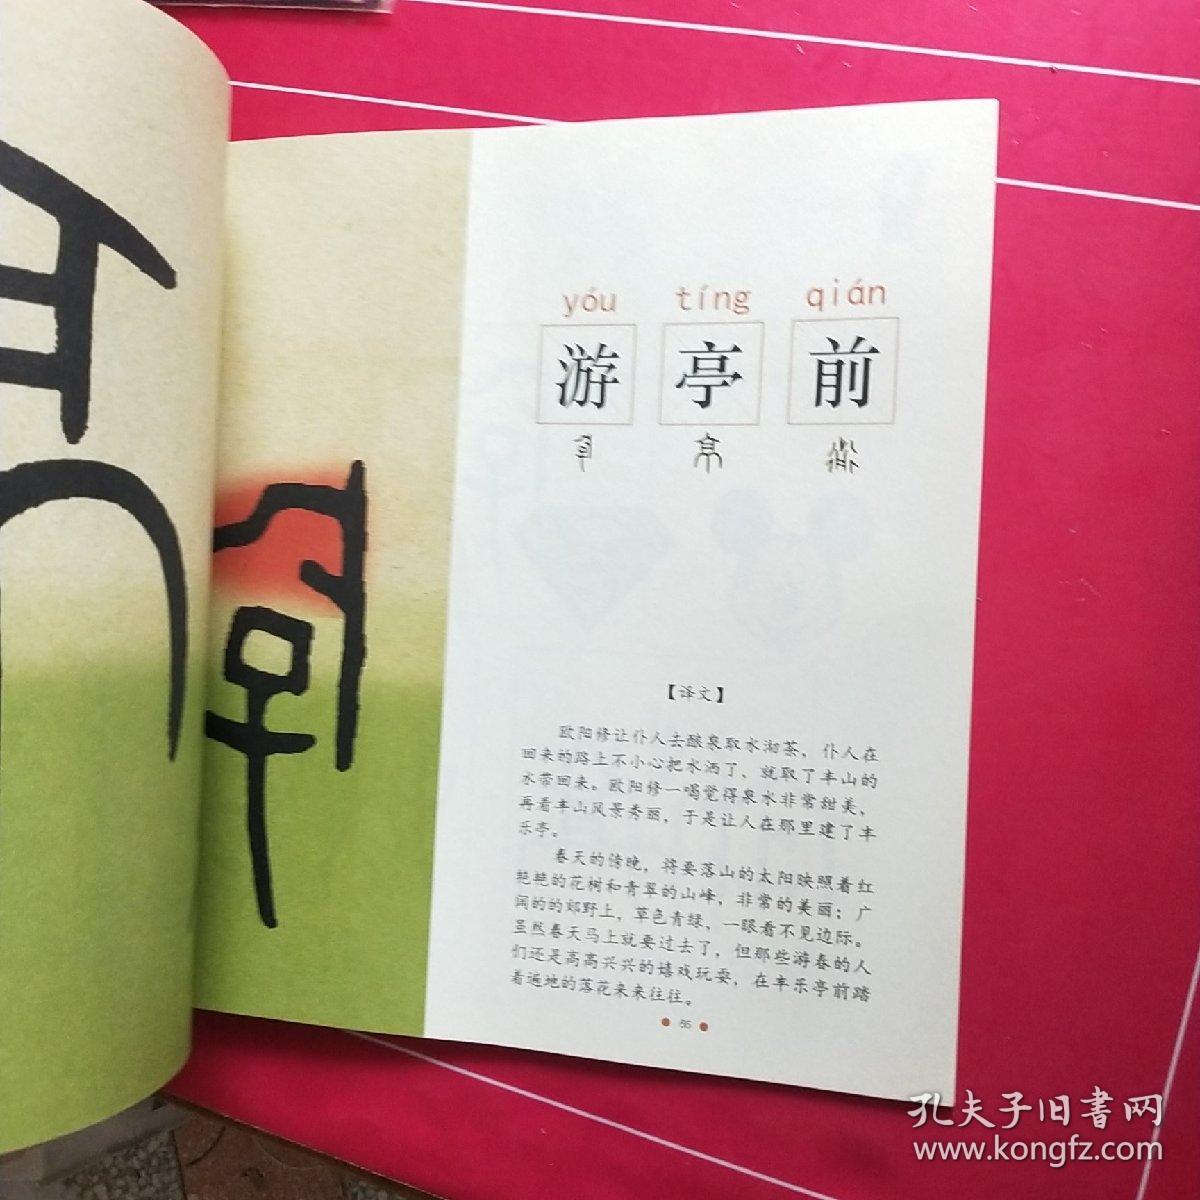 yóu tíng qián
游 亭 前
【译文】
欧阳修让仆人去酿泉取水沏茶，仆人在
回来的路上不小心把水洒了，就取了丰山的
水带回来。欧阳修一喝觉得泉水非常甜美，
再看丰山风景秀丽，于是让人在那里建了丰
乐亭。
春天的傍晚，将要落山的太阳映照着红
艳艳的花树和青翠的山峰，非常的美丽；广
阔的的郊野上，草色青绿，一眼看不见边际。
虽然春天马上就要过去了，但那些游春的人
们还是高高兴兴的嬉戏玩耍，在丰乐亭前踏
着遍地的落花来来往往。
孔夫子旧書网
www.kongfz.com